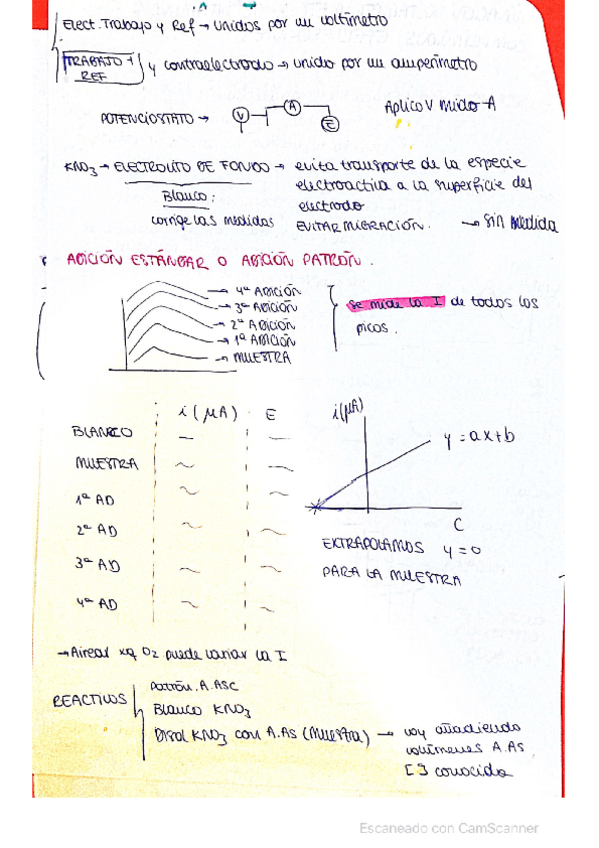 Elect. Trabajo y Ref → unidos por un voltímetro
TRABAJO + REF y contraelectrodo → unido por un amperímetro
POTENCIOSTATO → V A E Aplico V mido A
KNO3 → ELECTROLITO DE FONDO → evita transporte de la especie
electroactiva a la superficie del
electrodo
Blanco:
corrige las medidas EVITAR MIGRACIÓN. → sin medida
ADICIÓN ESTÁNDAR O ADICIÓN PATRÓN.
→ 4ª ADICIÓN
→ 3ª ADICIÓN
→ 2ª ADICIÓN
→ 1ª ADICIÓN
→ MUESTRA
se mide la I de todos los
picos.
i (μA) E
BLANCO
MUESTRA
1ª AD
2ª AD
3ª AD
4ª AD
i(μA)
y = ax+b
C
EXTRAPOLAMOS y=0
PARA LA MUESTRA
→ Airear xq O2 puede variar la I
REACTIVOS
Patrón. A. ASC
Blanco KNO3
Disol KNO3 con A.As (Muestra) → voy añadiendo
volúmenes A.As,
[ ] conocida
Escaneado con CamScanner